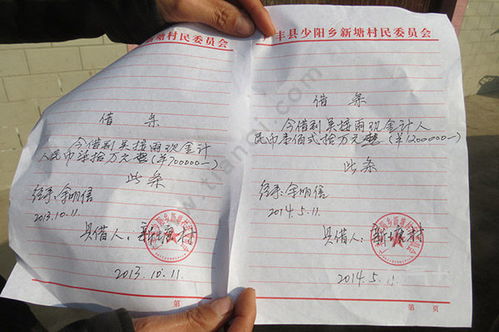 塘村民委员会
借条
今借到吴接雨现金计
人民币柒拾万元整(¥700000—)
此条
经手:余明信
2013.10.11.
具借人:新塘村
2013.10.11.
第
丰县少阳乡新塘村民委员会
借条
今借到吴接雨现金计人
民币壹佰贰拾万元整(¥1200000—)
此条
经手:余明信
2014.5.11.
具借人:新塘村
2014.5.11
第 页